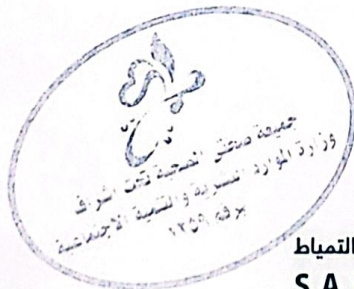 جمعية صحتي الصحية تحت اشراف
وزارة الموارد البشرية والتنمية الاجتماعية
برقم ١٢٥٩
التمياط
S A